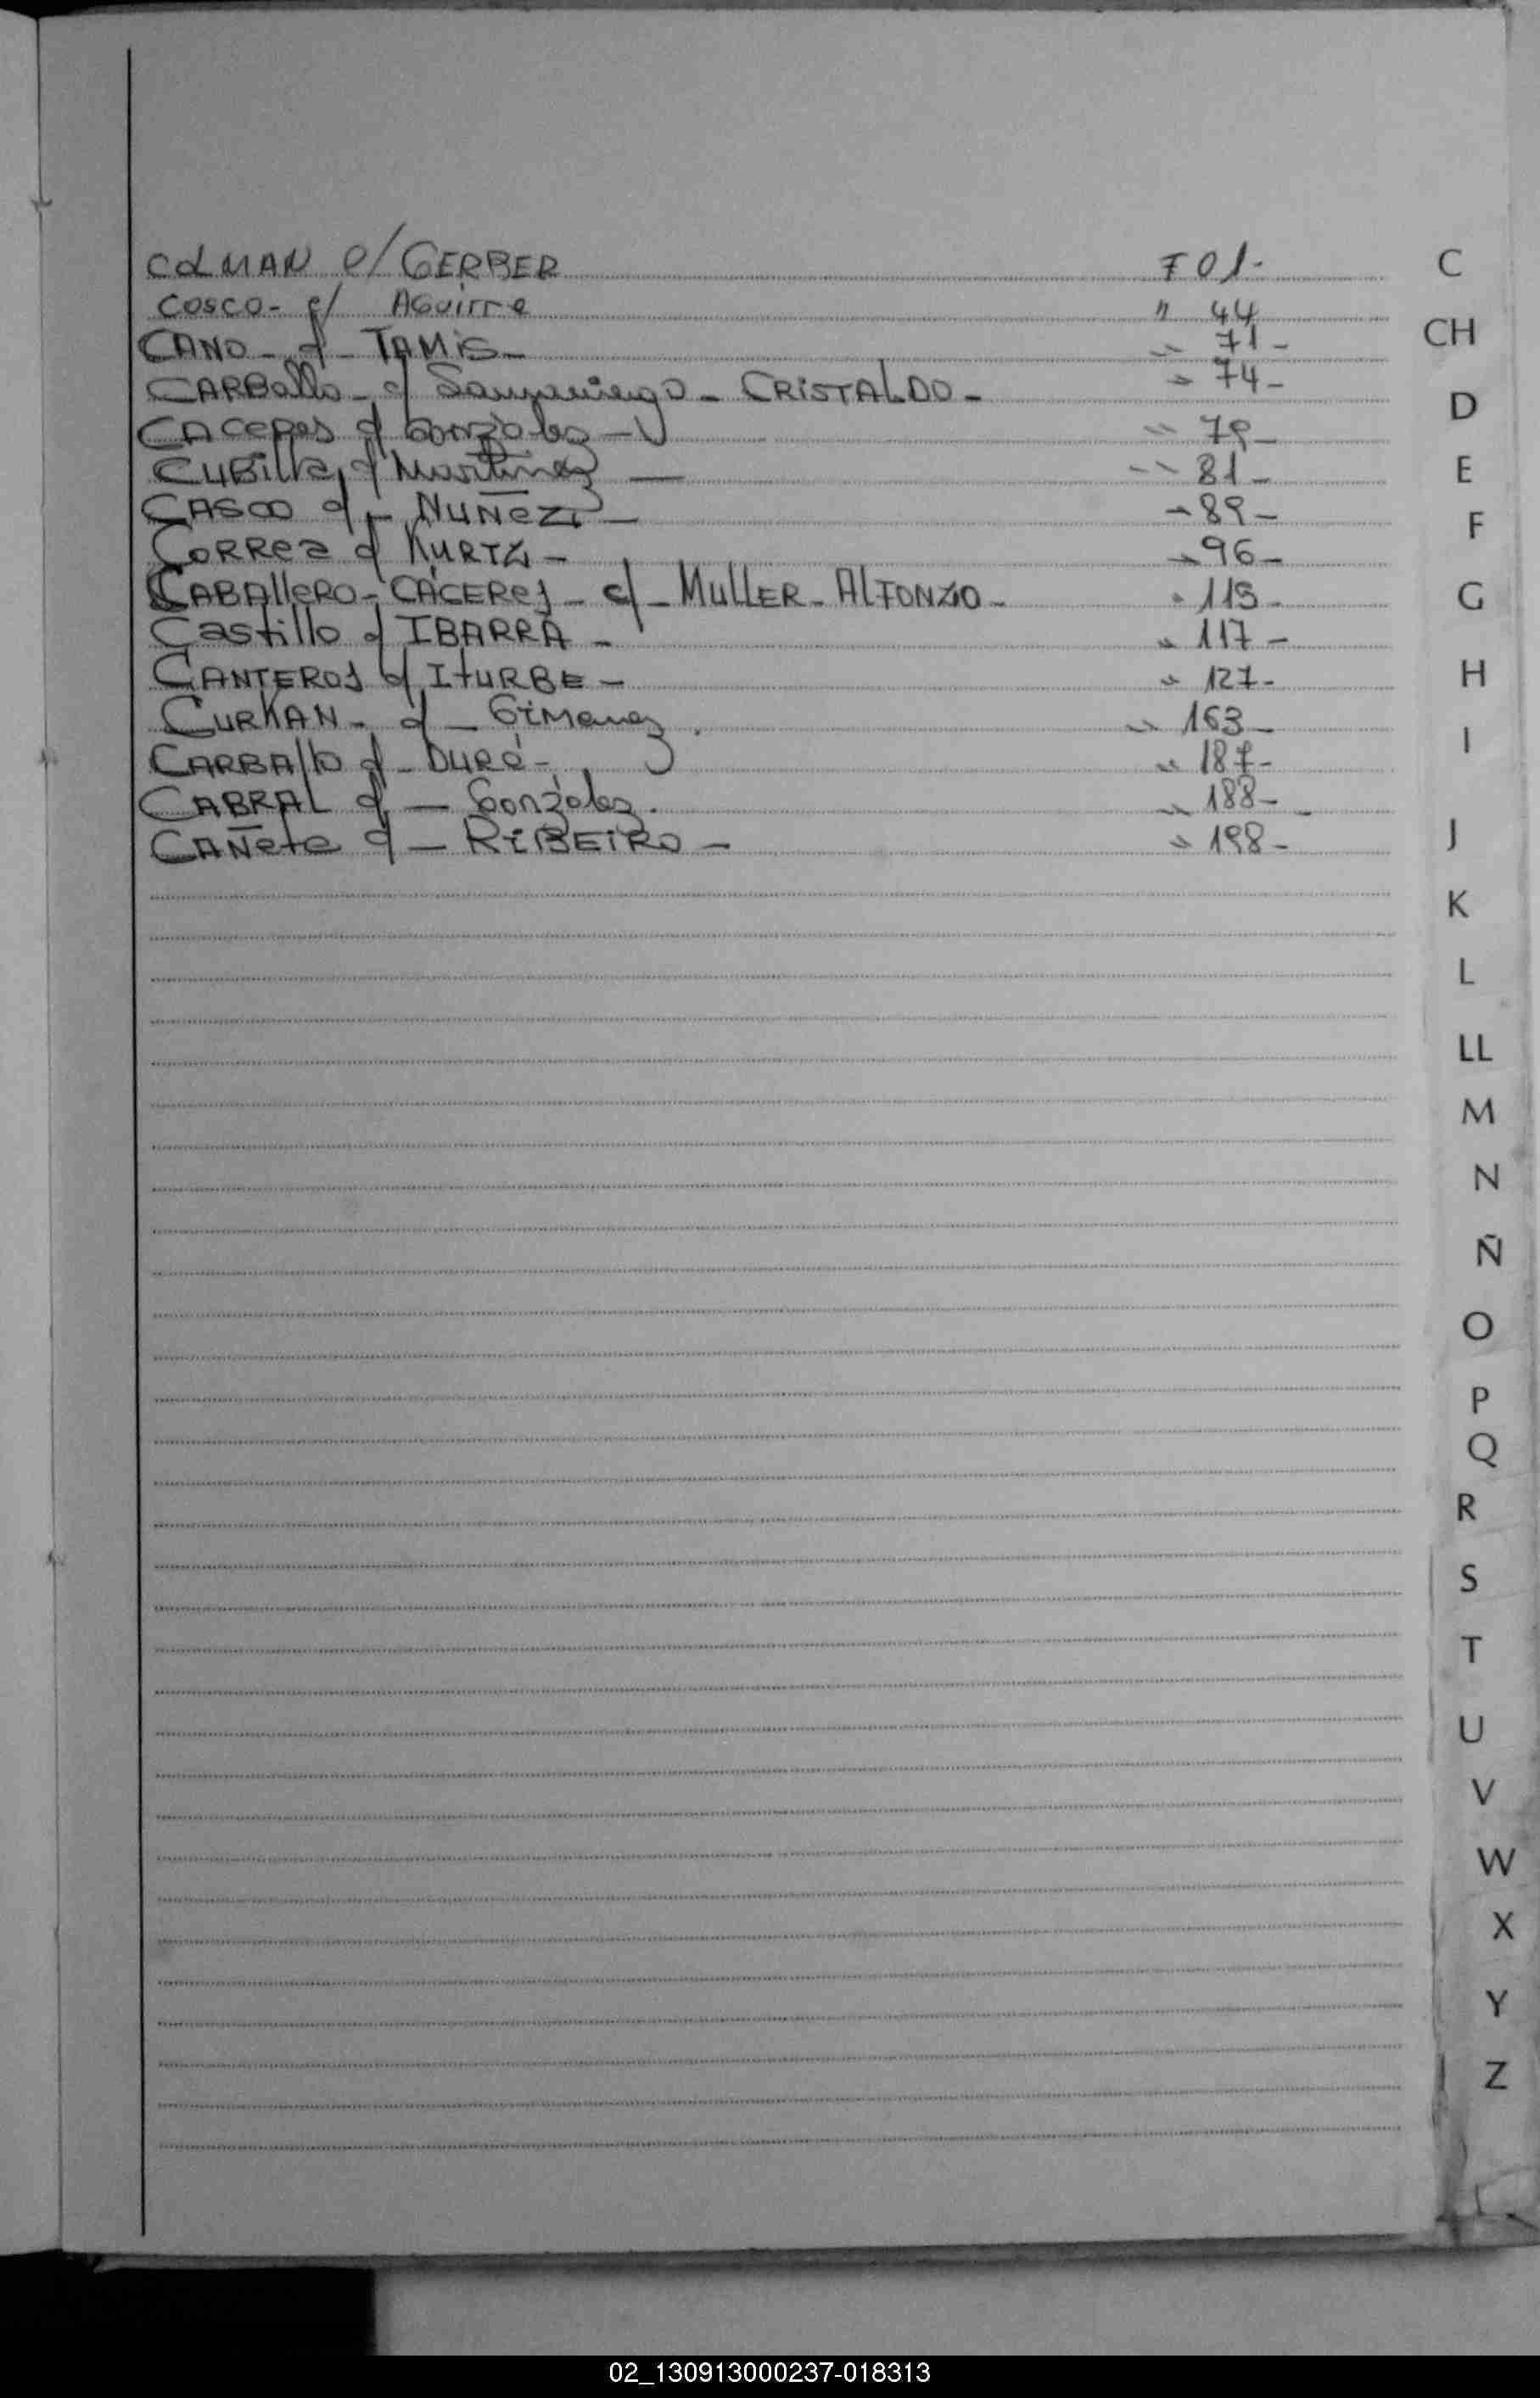 COLMAN c/ GERBER F 01-
COSCO- c/ AGUIRRE " 44
CANO - c/ - TAMIS - " 71 -
CARBallo - c/ Samaniego - CRISTALDO - " 74 -
CACERES c/ González - " 79 -
CUBIlla c/ Martinez — " 81 -
CASCO c/ - NUÑEZ - " 89 -
CORREA c/ KURTZ - " 96 -
CABAllERO - CÁCERES - c/ - MULLER - AlFONZO - " 115 -
Castillo c/ IBARRA - " 117 -
CANTEROS c/ ITURBE - " 127 -
CURKAN - c/ - GIMENEZ. " 163 -
CARBAllo c/ - DURÉ - " 187 -
CABRAL c/ - González. " 188 -
CAÑete c/ - RIBEIRO - " 198 -
C
CH
D
E
F
G
H
I
J
K
L
LL
M
N
Ñ
O
P
Q
R
S
T
U
V
W
X
Y
Z
02_130913000237-018313